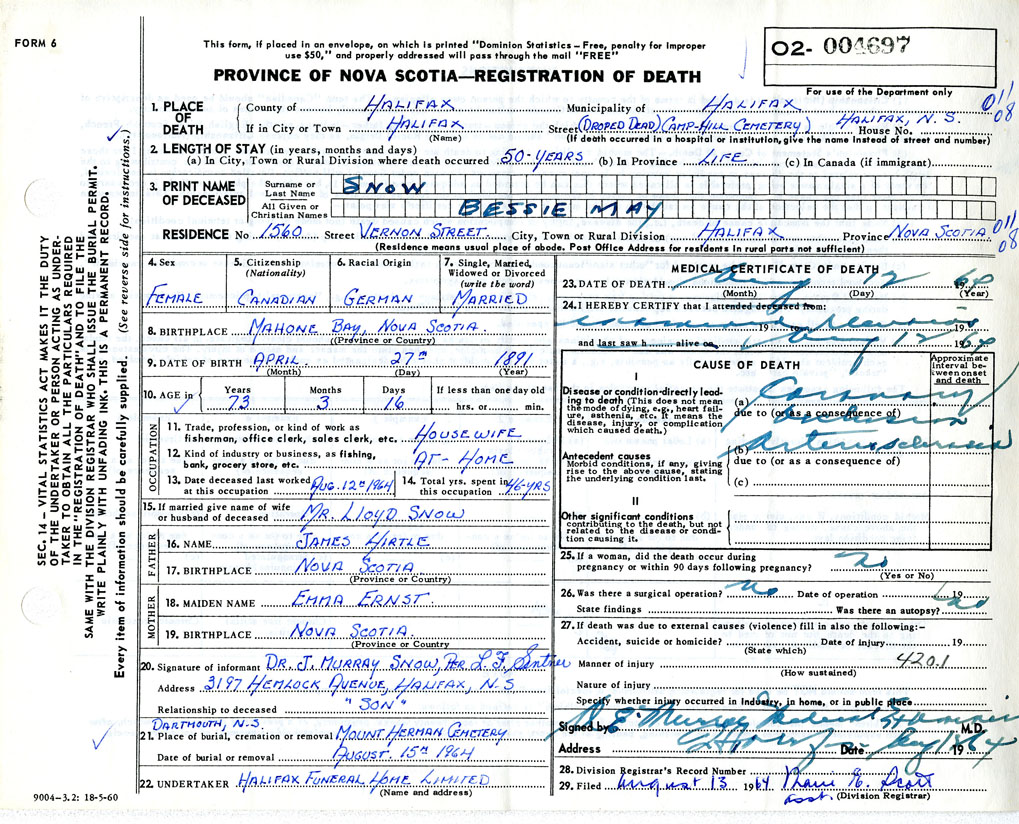 FORM 6
This form, if placed in an envelope, on which is printed "Dominion Statistics – Free, penalty for improper
use $50," and properly addressed will pass through the mail "FREE"
O2- 004697
For use of the Department only
PROVINCE OF NOVA SCOTIA—REGISTRATION OF DEATH
SEC. 14 – VITAL STATISTICS ACT MAKES IT THE DUTY
OF THE UNDERTAKER OR PERSON ACTING AS UNDER-
TAKER TO OBTAIN ALL THE PARTICULARS REQUIRED
IN THE "REGISTRATION OF DEATH" AND TO FILE THE
SAME WITH THE DIVISION REGISTRAR WHO SHALL ISSUE THE BURIAL PERMIT.
WRITE PLAINLY WITH UNFADING INK. THIS IS A PERMANENT RECORD.
Every item of information should be carefully supplied. (See reverse side for instructions.)
1. PLACE OF DEATH
County of HALIFAX Municipality of HALIFAX 011 08
If in City or Town HALIFAX Street (DROPED DEAD) (CAMP-HILL CEMETERY) HALIFAX, N.S. House No.
(Name) (If death occurred in a hospital or institution, give the name instead of street and number)
2. LENGTH OF STAY (in years, months and days)
(a) In City, Town or Rural Division where death occurred 50-YEARS (b) In Province LIFE (c) In Canada (if immigrant)
3. PRINT NAME OF DECEASED
Surname or Last Name SNOW
All Given or Christian Names BESSIE MAY
RESIDENCE No 1560 Street VERNON STREET City, Town or Rural Division HALIFAX Province NOVA SCOTIA 011 08
(Residence means usual place of abode. Post Office Address for residents in rural parts not sufficient)
4. Sex FEMALE
5. Citizenship (Nationality) CANADIAN
6. Racial Origin GERMAN
7. Single, Married, Widowed or Divorced (write the word) MARRIED
8. BIRTHPLACE MAHONE BAY, NOVA SCOTIA
(Province or Country)
9. DATE OF BIRTH APRIL 27TH 1891
(Month) (Day) (Year)
10. AGE in Years 73 Months 3 Days 16 If less than one day old hrs. or min.
OCCUPATION
11. Trade, profession, or kind of work as
fisherman, office clerk, sales clerk, etc. HOUSEWIFE
12. Kind of industry or business, as fishing,
bank, grocery store, etc. AT-HOME
13. Date deceased last worked at this occupation AUG. 12th 1964
14. Total yrs. spent in this occupation 46-YRS
15. If married give name of wife
or husband of deceased MR. LLOYD SNOW
FATHER
16. NAME JAMES HIRTLE
17. BIRTHPLACE NOVA SCOTIA
(Province or Country)
MOTHER
18. MAIDEN NAME EMMA ERNST
19. BIRTHPLACE NOVA SCOTIA.
(Province or Country
20. Signature of informant DR. J. MURRAY SNOW, PER L.F.
Address 3197 HEMLOCK AVENUE, HALIFAX, N.S
Relationship to deceased "SON"
DARTMOUTH, N.S.
21. Place of burial, cremation or removal MOUNT HERMAN CEMETERY
Date of burial or removal AUGUST. 15TH 1964
22. UNDERTAKER HALIFAX FUNERAL HOME LIMITED
(Name and address)
9004-3.2: 18-5-60
MEDICAL CERTIFICATE OF DEATH
23. DATE OF DEATH Aug 12 1964
(Month) (Day) (Year)
24. I HEREBY CERTIFY that I attended deceased from:
19 to 19
and last saw h alive on Aug 12 1964
CAUSE OF DEATH
Approximate interval between onset and death
I
Disease or condition directly leading to death (This does not mean the mode of dying, e.g., heart failure, asthenia, etc. It means the disease, injury, or complication which caused death.)
(a) Coronary occlusion
due to (or as a consequence of)
Antecedent causes
Morbid conditions, if any, giving rise to the above cause, stating the underlying condition last.
(b) Arteriosclerosis
due to (or as a consequence of)
(c)
II
Other significant conditions
contributing to the death, but not related to the disease or condition causing it.
25. If a woman, did the death occur during
pregnancy or within 90 days following pregnancy? No
(Yes or No)
26. Was there a surgical operation? No Date of operation 19
State findings Was there an autopsy? No
27. If death was due to external causes (violence) fill in also the following:-
Accident, suicide or homicide? Date of injury 19
(State which)
Manner of injury 4201
(How sustained)
Nature of injury
Specify whether injury occurred in Industry, in home, or in public place
Signed by Murray Medical Examiner M.D.
Address Halifax Date Aug 1964
28. Division Registrar's Record Number
29. Filed August 13 1964
asst. (Division Registrar)